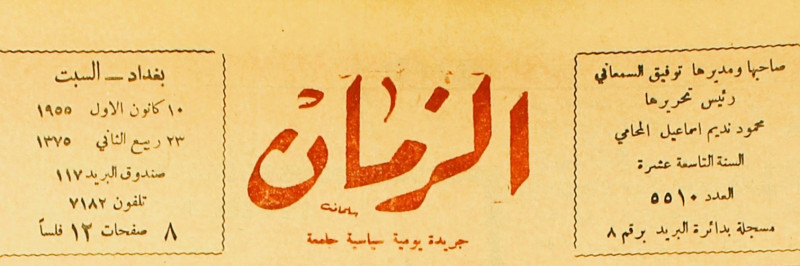 صاحبها ومديرها توفيق السمعاني
رئيس تحريرها
محمود نديم اسماعيل المحامي
السنة التاسعة عشرة
العدد ٥٥١٠
مسجلة بدائرة البريد برقم ٨
الزمان
سلمان
جريدة يومية سياسية جامعة
بغداد – السبت
١٠ كانون الاول ١٩٥٥
٢٣ ربيع الثاني ١٣٧٥
صندوق البريد ١١٧
تلفون ٧١٨٢
٨ صفحات ١٢ فلساً